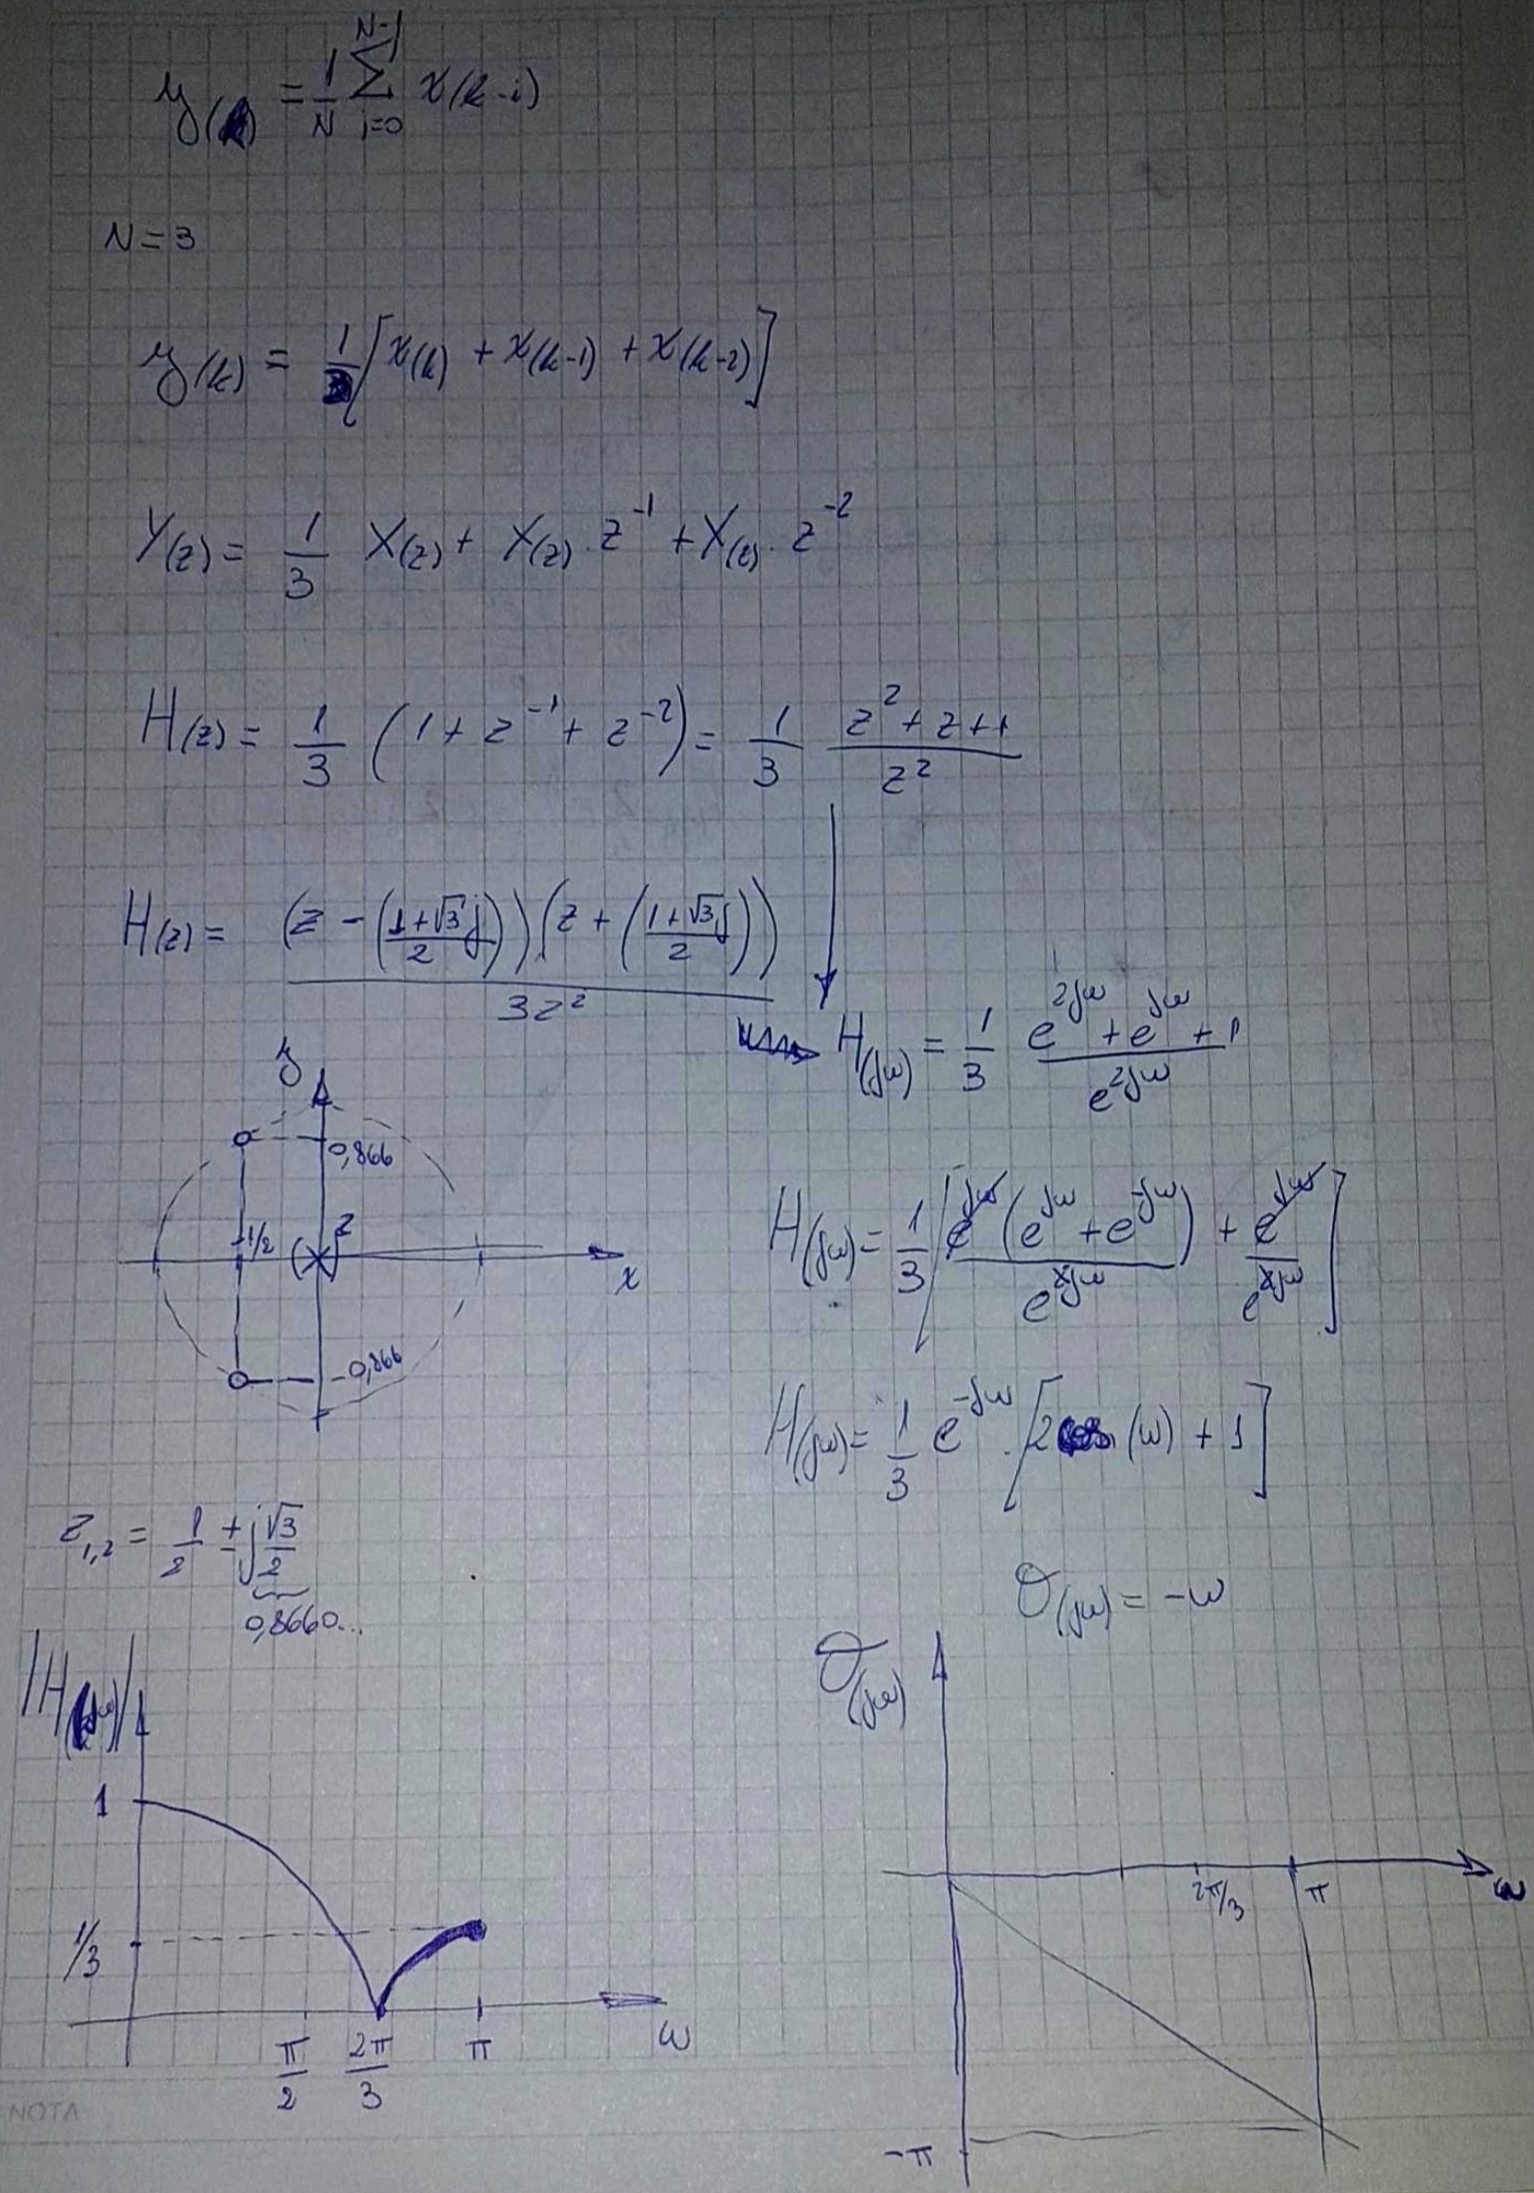 y(k) = 1/N Σ_{i=0}^{N-1} x(k-i)
N=3
y(k) = 1/3 [x(k) + x(k-1) + x(k-2)]
Y(z) = 1/3 X(z) + X(z) · z^-1 + X(z) · z^-2
H(z) = 1/3 (1 + z^-1 + z^-2) = 1/3 (z^2 + z + 1)/z^2
H(z) = (z - ((1+√3 j)/2)) (z + ((1+√3 j)/2)) / 3z^2
H(jω) = 1/3 (e^{2jω} + e^{jω} + 1)/e^{2jω}
y
0,866
-1/2
( )^2
x
-0,866
H(jω) = 1/3 [e^{jω} (e^{jω} + e^{-jω})/e^{2jω} + e^{jω}/e^{2jω}]
H(jω) = 1/3 e^{-jω} · [2cos(ω) + 1]
z_{1,2} = 1/2 ± j √3/2
0,8660...
Θ(jω) = -ω
|H(jω)|
1
1/3
π/2
2π/3
π
ω
Θ(jω)
2π/3
π
ω
-π
NOTA